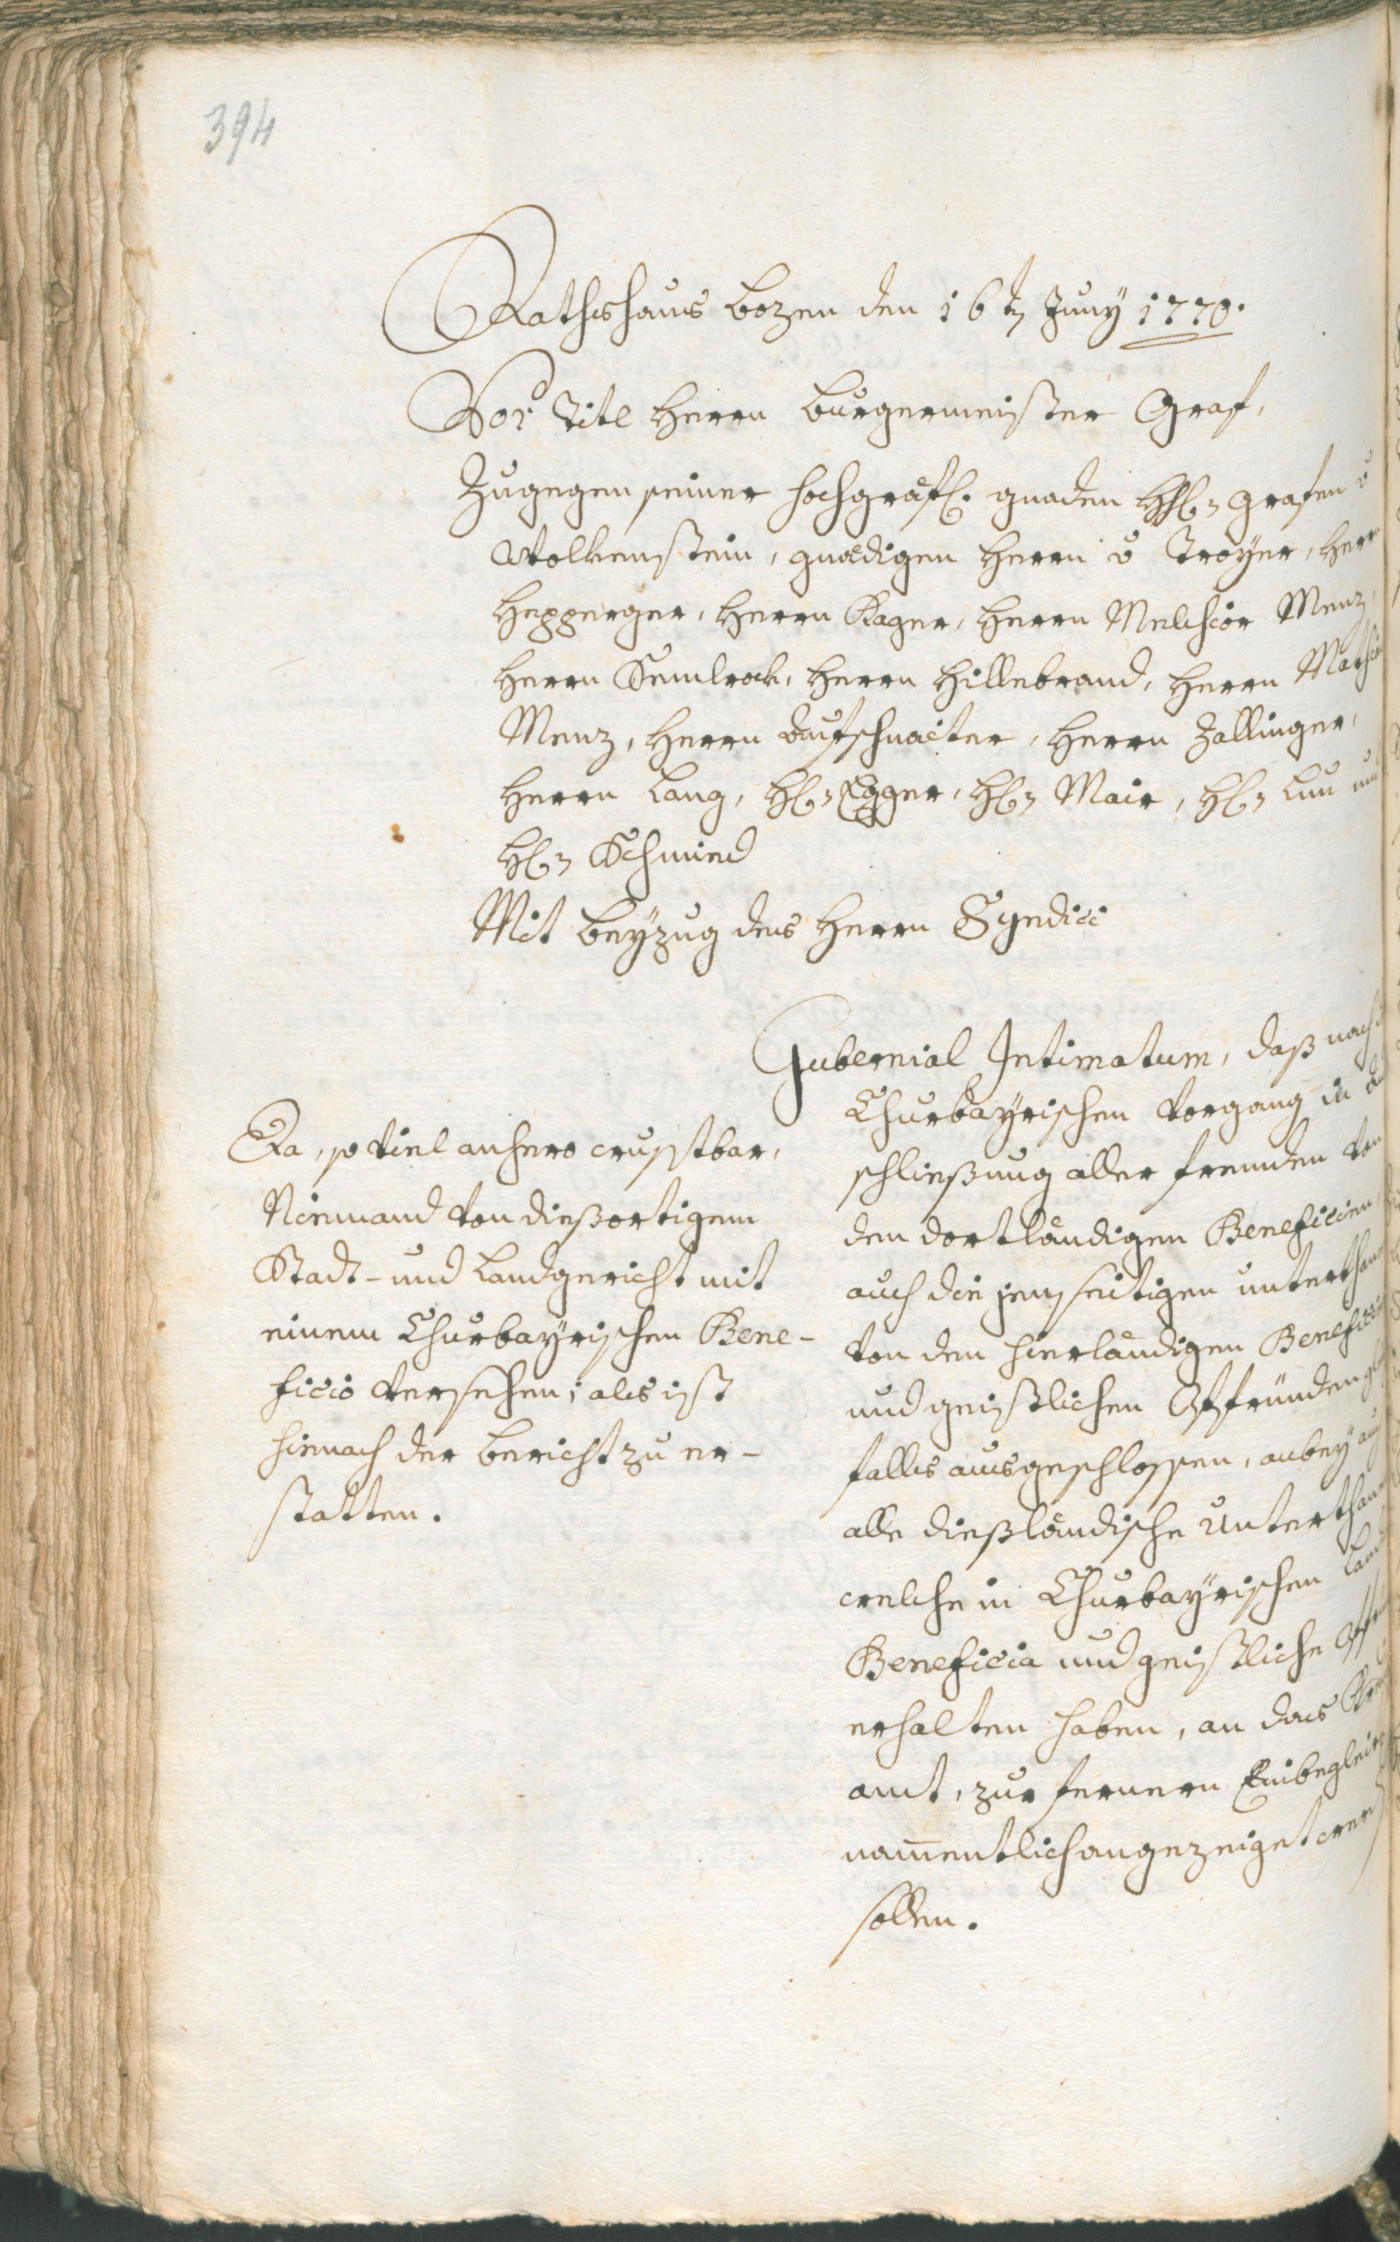 394
Rathshaus Bozen den 16ten Juny 1770.
Vor Titl Herrn Burgermeister Graf,
Zugegen seiner hochgräfl. gnaden HHn Grafen v
Wolkenstein, gnädigen Herrn v Troyer, Herrn
Hepperger, Herrn Rager, Herrn Melchior Menz,
Herrn Semlrock, Herrn Hillebrand, Herrn
Menz, Herrn Aufschnaiter, Herrn Zallinger,
Herrn Lang, Hn Egger, Hn Mair, Hn Luu und
Hn Schmied
Mit beyzug des Herrn Syndici
Da, so viel anhero bewusstbar,
Niemand von dießortigem
Stadt- und Landgericht mit
einem Churbayrischen Bene-
ficio versehen; als ist
hienach der Bericht zu er-
statten.
Gubernial Intimatum, daß nach
Churbayrischen Vorgang in
schließung aller fremden von
den dortländigen Beneficien
auch die jenseitigen unterthanen
von den hierländigen Beneficien
und geistlichen Pfründen
falls ausgeschlossen, anbey auch
alle dießländische Unterthanen
welche in Churbayrischen Landen
Beneficia und geistliche
erhalten haben, an das
amt, zur fernern Einbegleitung
nam̄entlich angezeiget werden
sollen.